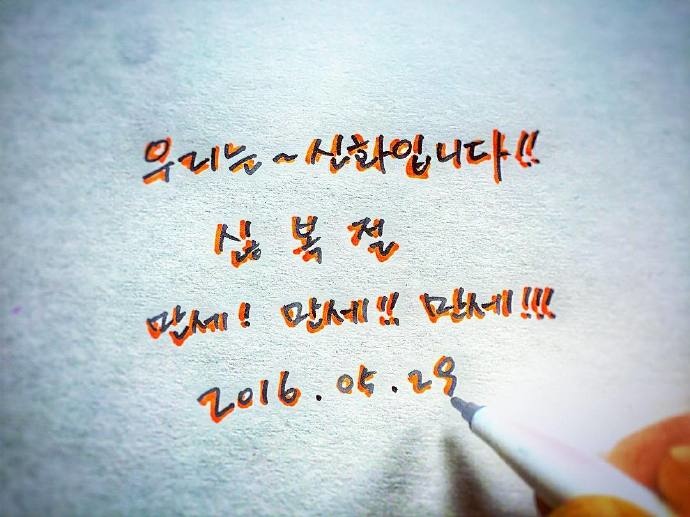 우리는~신화입니다!!
신복절
만세! 만세!! 만세!!!
2016.05.29